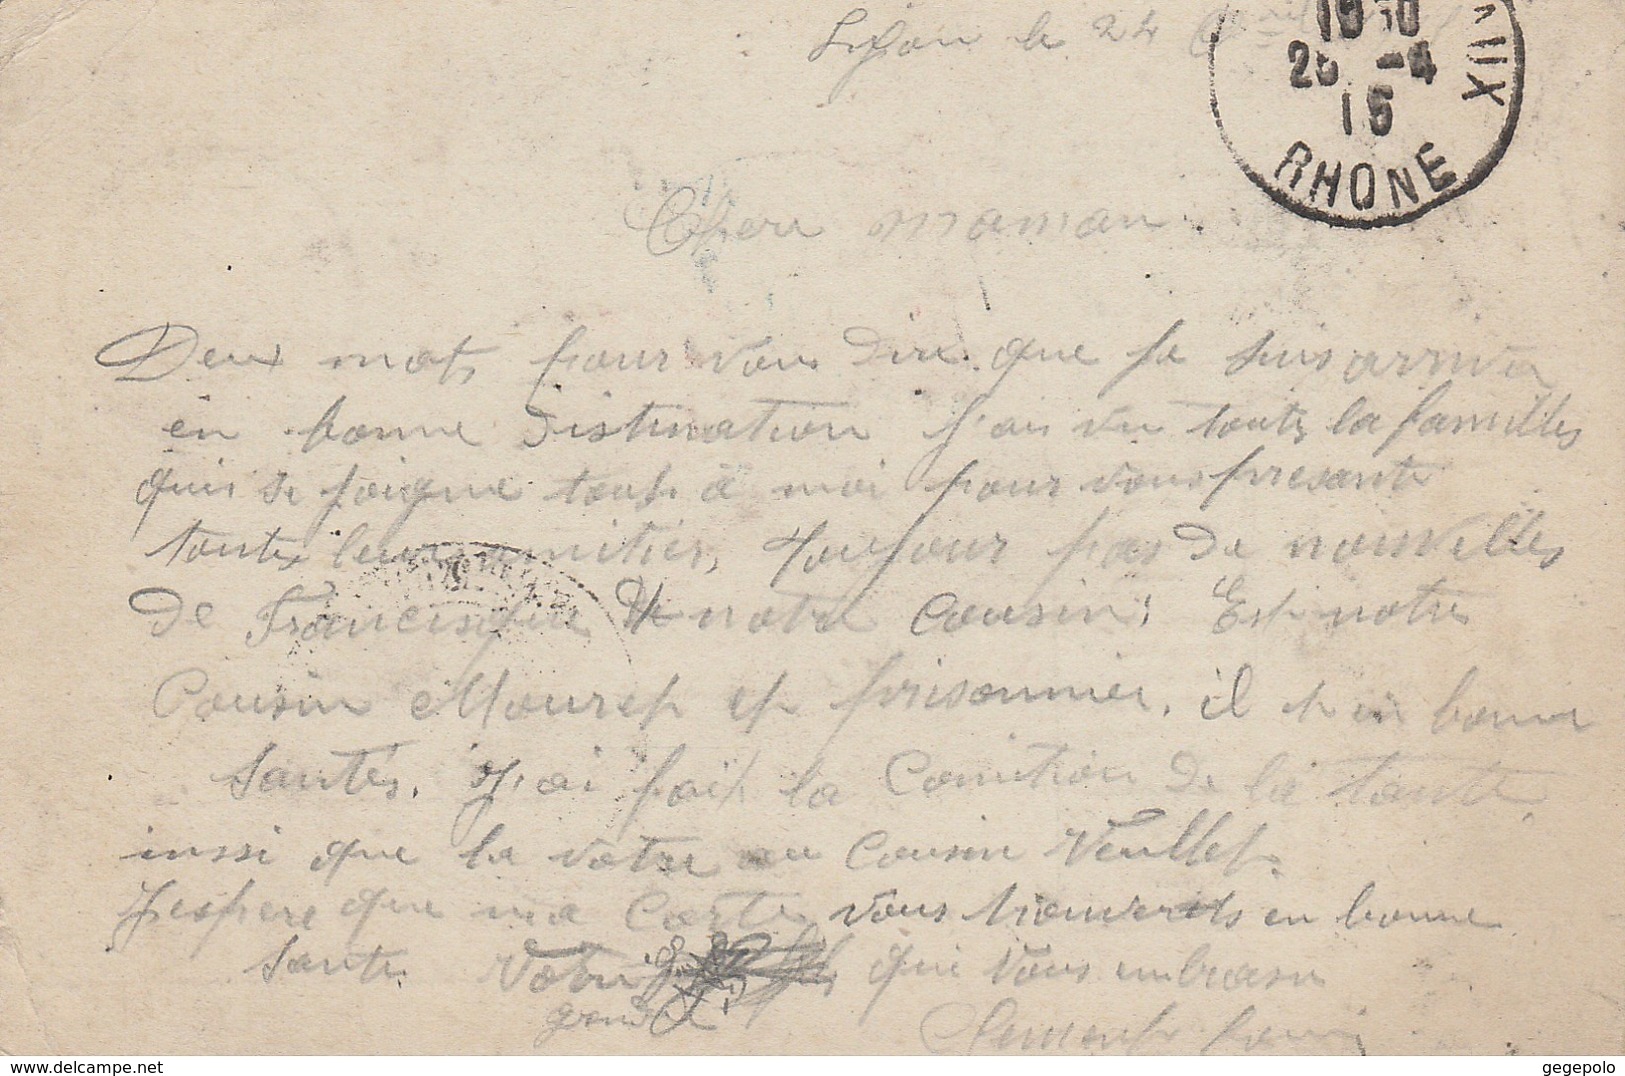 Lyon le 24
25 -4
15
RHONE
Chere maman
Deux mots pour vous dire que je suis arriver
en bonne distination j'ai vu toute la familles
qui se joigne tous à moi pour vous presante
toutes leurs amitiés, toujour pas de nouvelles
de Francisque notre cousin, Est notre
Cousin Mouret et prisonnier, il est en bonne
Santés. J'ai fait la Comition de la tante
inssi que la votre au Cousin Veullet.
J'espere que ma carte vous trouveras en bonne
Sante Votre qui vous embrasse
Clement
gegepolo